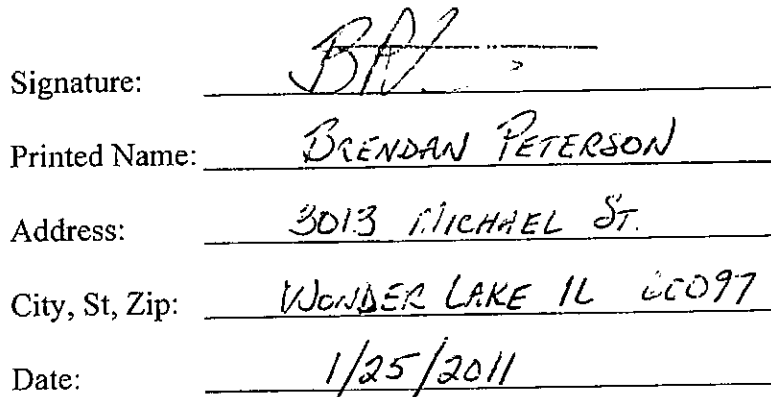 Signature:
Printed Name: BRENDAN PETERSON
Address: 3013 MICHAEL ST.
City, St, Zip: WONDER LAKE IL 60097
Date: 1/25/2011